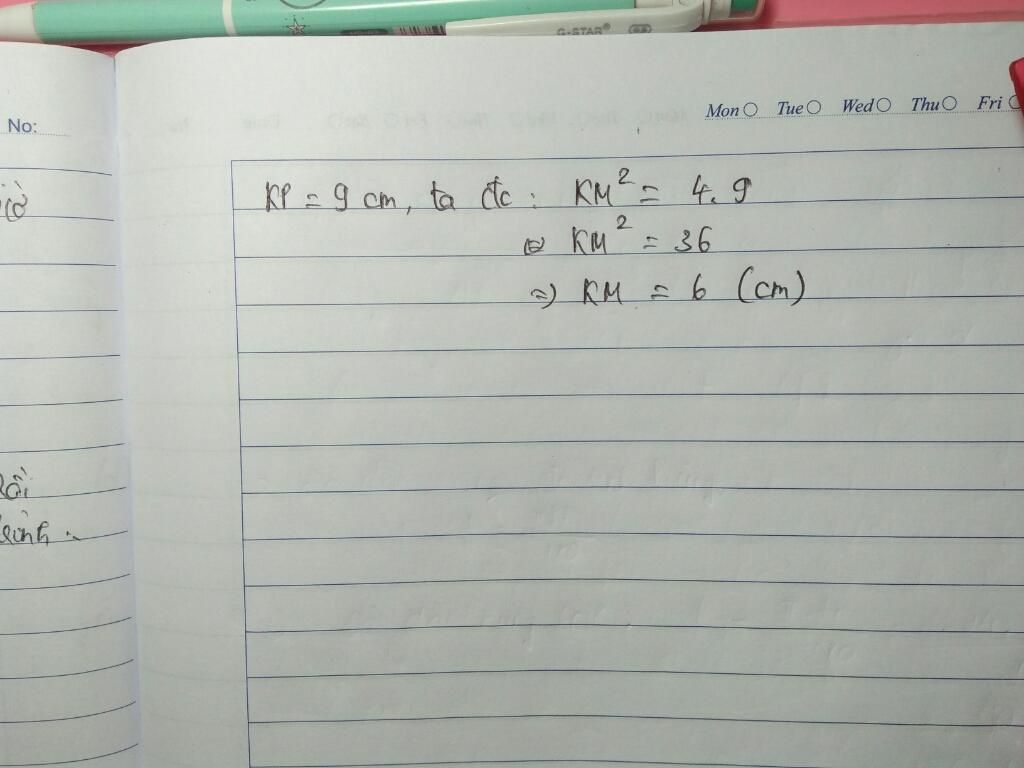 G-STAR®
Mon Tue Wed Thu Fri
No:
KP = 9 cm, ta đc : KM² = 4.9
⇔ KM² = 36
=) KM = 6 (cm)